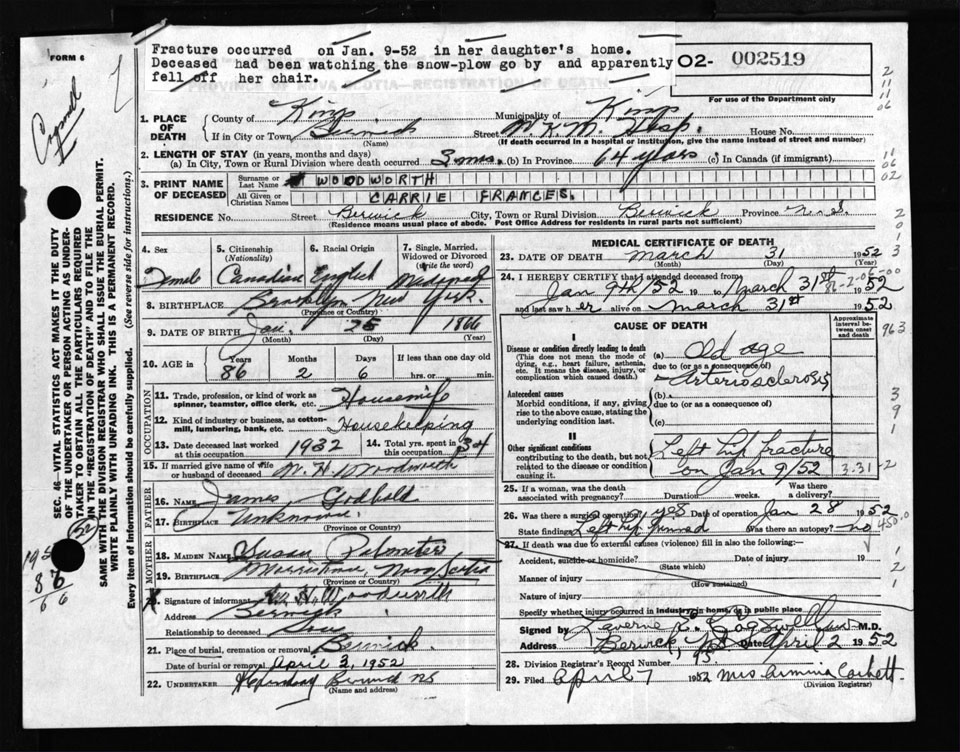 FORM 6
Fracture occurred on Jan. 9-52 in her daughter's home.
Deceased had been watching the snow-plow go by and apparently
fell off her chair.
O2- 002519
PROVINCE OF NOVA SCOTIA—REGISTRATION OF DEATH
For use of the Department only
1. PLACE OF DEATH
County of Kings Municipality of Kings
If in City or Town Berwick Street W. K. M. Hosp. House No.
(Name) (If death occurred in a hospital or institution, give the name instead of street and number)
2. LENGTH OF STAY (in years, months and days)
(a) In City, Town or Rural Division where death occurred 3 mos. (b) In Province 64 years (c) In Canada (if immigrant)
3. PRINT NAME OF DECEASED
Surname or Last Name WOODWORTH
All Given or Christian Names CARRIE FRANCES.
RESIDENCE No. Street Berwick City, Town or Rural Division Berwick Province N.S.
(Residence means usual place of abode. Post Office Address for residents in rural parts not sufficient)
4. Sex Female
5. Citizenship (Nationality) Canadian
6. Racial Origin English
7. Single, Married, Widowed or Divorced (write the word) Widowed
8. BIRTHPLACE Brooklyn New York.
(Province or Country)
9. DATE OF BIRTH Jan. 25 1866
(Month) (Day) (Year)
10. AGE in Years 86 Months 2 Days 6 If less than one day old hrs. or min.
OCCUPATION
11. Trade, profession, or kind of work as spinner, teamster, office clerk, etc. Housewife
12. Kind of industry or business, as cotton-mill, lumbering, bank, etc. Housekeeping
13. Date deceased last worked at this occupation 1932
14. Total yrs. spent in this occupation 34
15. If married give name of wife or husband of deceased W. H. Woodworth
FATHER
16. Name James Godbold
17. Birthplace Unknown.
(Province or Country)
MOTHER
18. MAIDEN NAME Susan
19. BIRTHPLACE Nova Scotia
(Province or Country)
20. Signature of informant H. Woodworth
Address Berwick
Relationship to deceased Son
21. Place of burial, cremation or removal Berwick.
Date of burial or removal April 3, 1952
22. UNDERTAKER Berwick NS
(Name and address)
MEDICAL CERTIFICATE OF DEATH
23. DATE OF DEATH March 31 1952
(Month) (Day)
24. I HEREBY CERTIFY that I attended deceased from
Jan 9th/52 19 to March 31st 1952
and last saw her alive on March 31st 1952
CAUSE OF DEATH
Approximate interval between onset and death
I
Disease or condition directly leading to death
(This does not mean the mode of dying, e.g., heart failure, asthenia, etc. It means the disease, injury, or complication which caused death.)
(a) Old age
due to (or as a consequence of)
Arteriosclerosis
Antecedent causes
Morbid conditions, if any, giving rise to the above cause, stating the underlying condition last.
(b)
due to (or as a consequence of)
(c)
II
Other significant conditions contributing to the death, but not related to the disease or condition causing it.
Left hip fracture
on Jan 9/52 3-31-2
25. If a woman, was the death associated with pregnancy? Duration weeks. Was there a delivery?
26. Was there a surgical operation? yes Date of operation Jan 28 1952
State findings Left hip pinned Was there an autopsy? no
27. If death was due to external causes (violence) fill in also the following:—
Accident, suicide or homicide? Date of injury 19
(State which)
Manner of injury
(How sustained)
Nature of injury
Specify whether injury occurred in industry, in home, or in public place
Signed by Laverne R. Cogswell M.D.
Address Berwick, NS Date April 2 1952
28. Division Registrar's Record Number 95
29. Filed April 7 1952 Mrs Armina Corbett
(Division Registrar)
SEC. 46—VITAL STATISTICS ACT MAKES IT THE DUTY
OF THE UNDERTAKER OR PERSON ACTING AS UNDER-
TAKER TO OBTAIN ALL THE PARTICULARS REQUIRED
IN THE "REGISTRATION OF DEATH" AND TO FILE THE
SAME WITH THE DIVISION REGISTRAR WHO SHALL ISSUE THE BURIAL PERMIT.
WRITE PLAINLY WITH UNFADING INK. THIS IS A PERMANENT RECORD.
Every item of information should be carefully supplied. (See reverse side for instructions.)